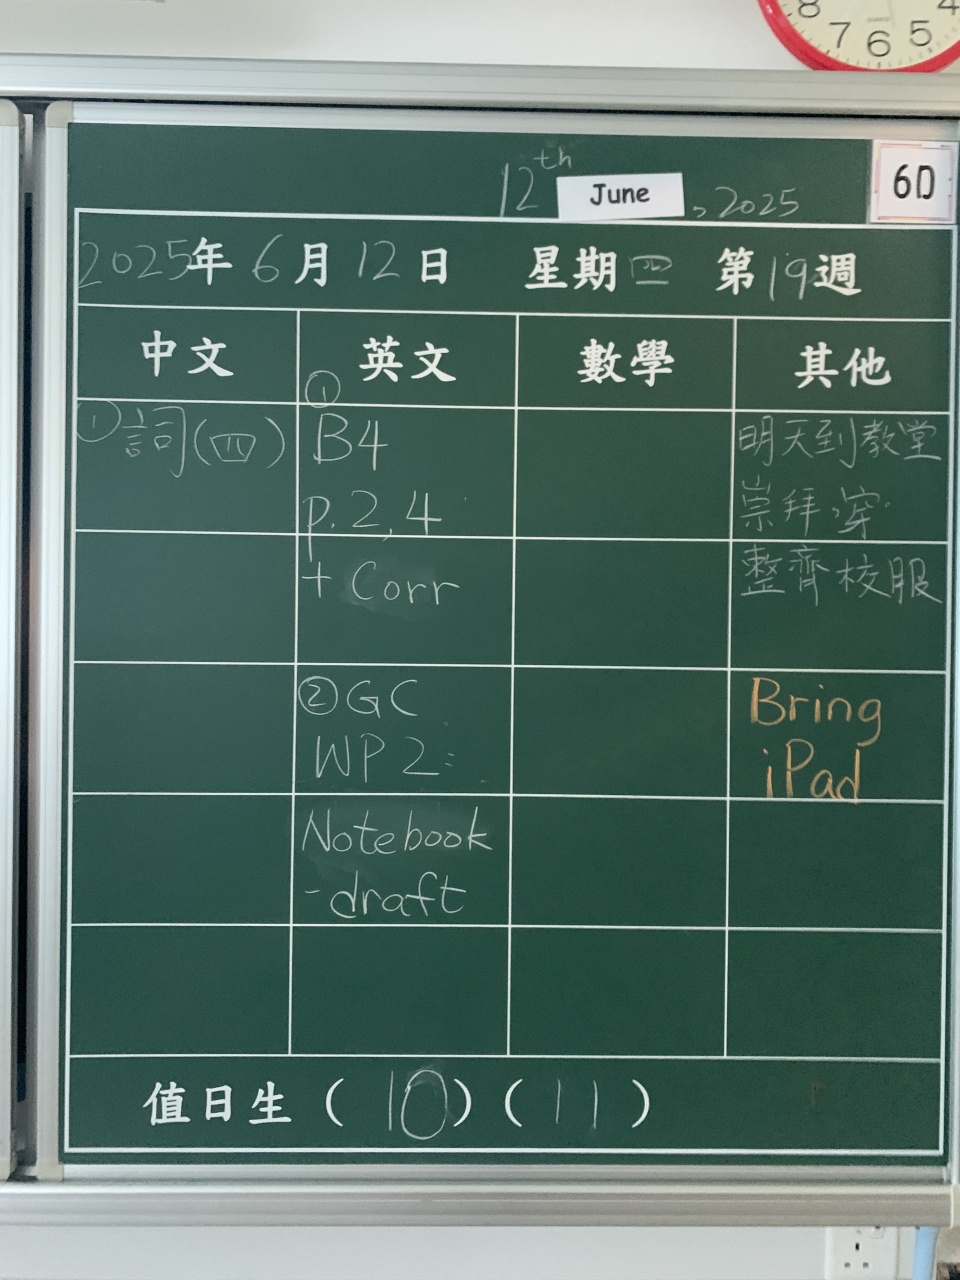 8 7 6 5 4
12th June, 2025
6D
2025年6月12日 星期四 第19週
中文 英文 數學 其他
① 詞(四)
①
B4
p.2,4
+ Corr
② GC
WP2:
Notebook
-draft
明天到教堂
崇拜,穿
整齊校服
Bring
iPad
值日生(10)(11)